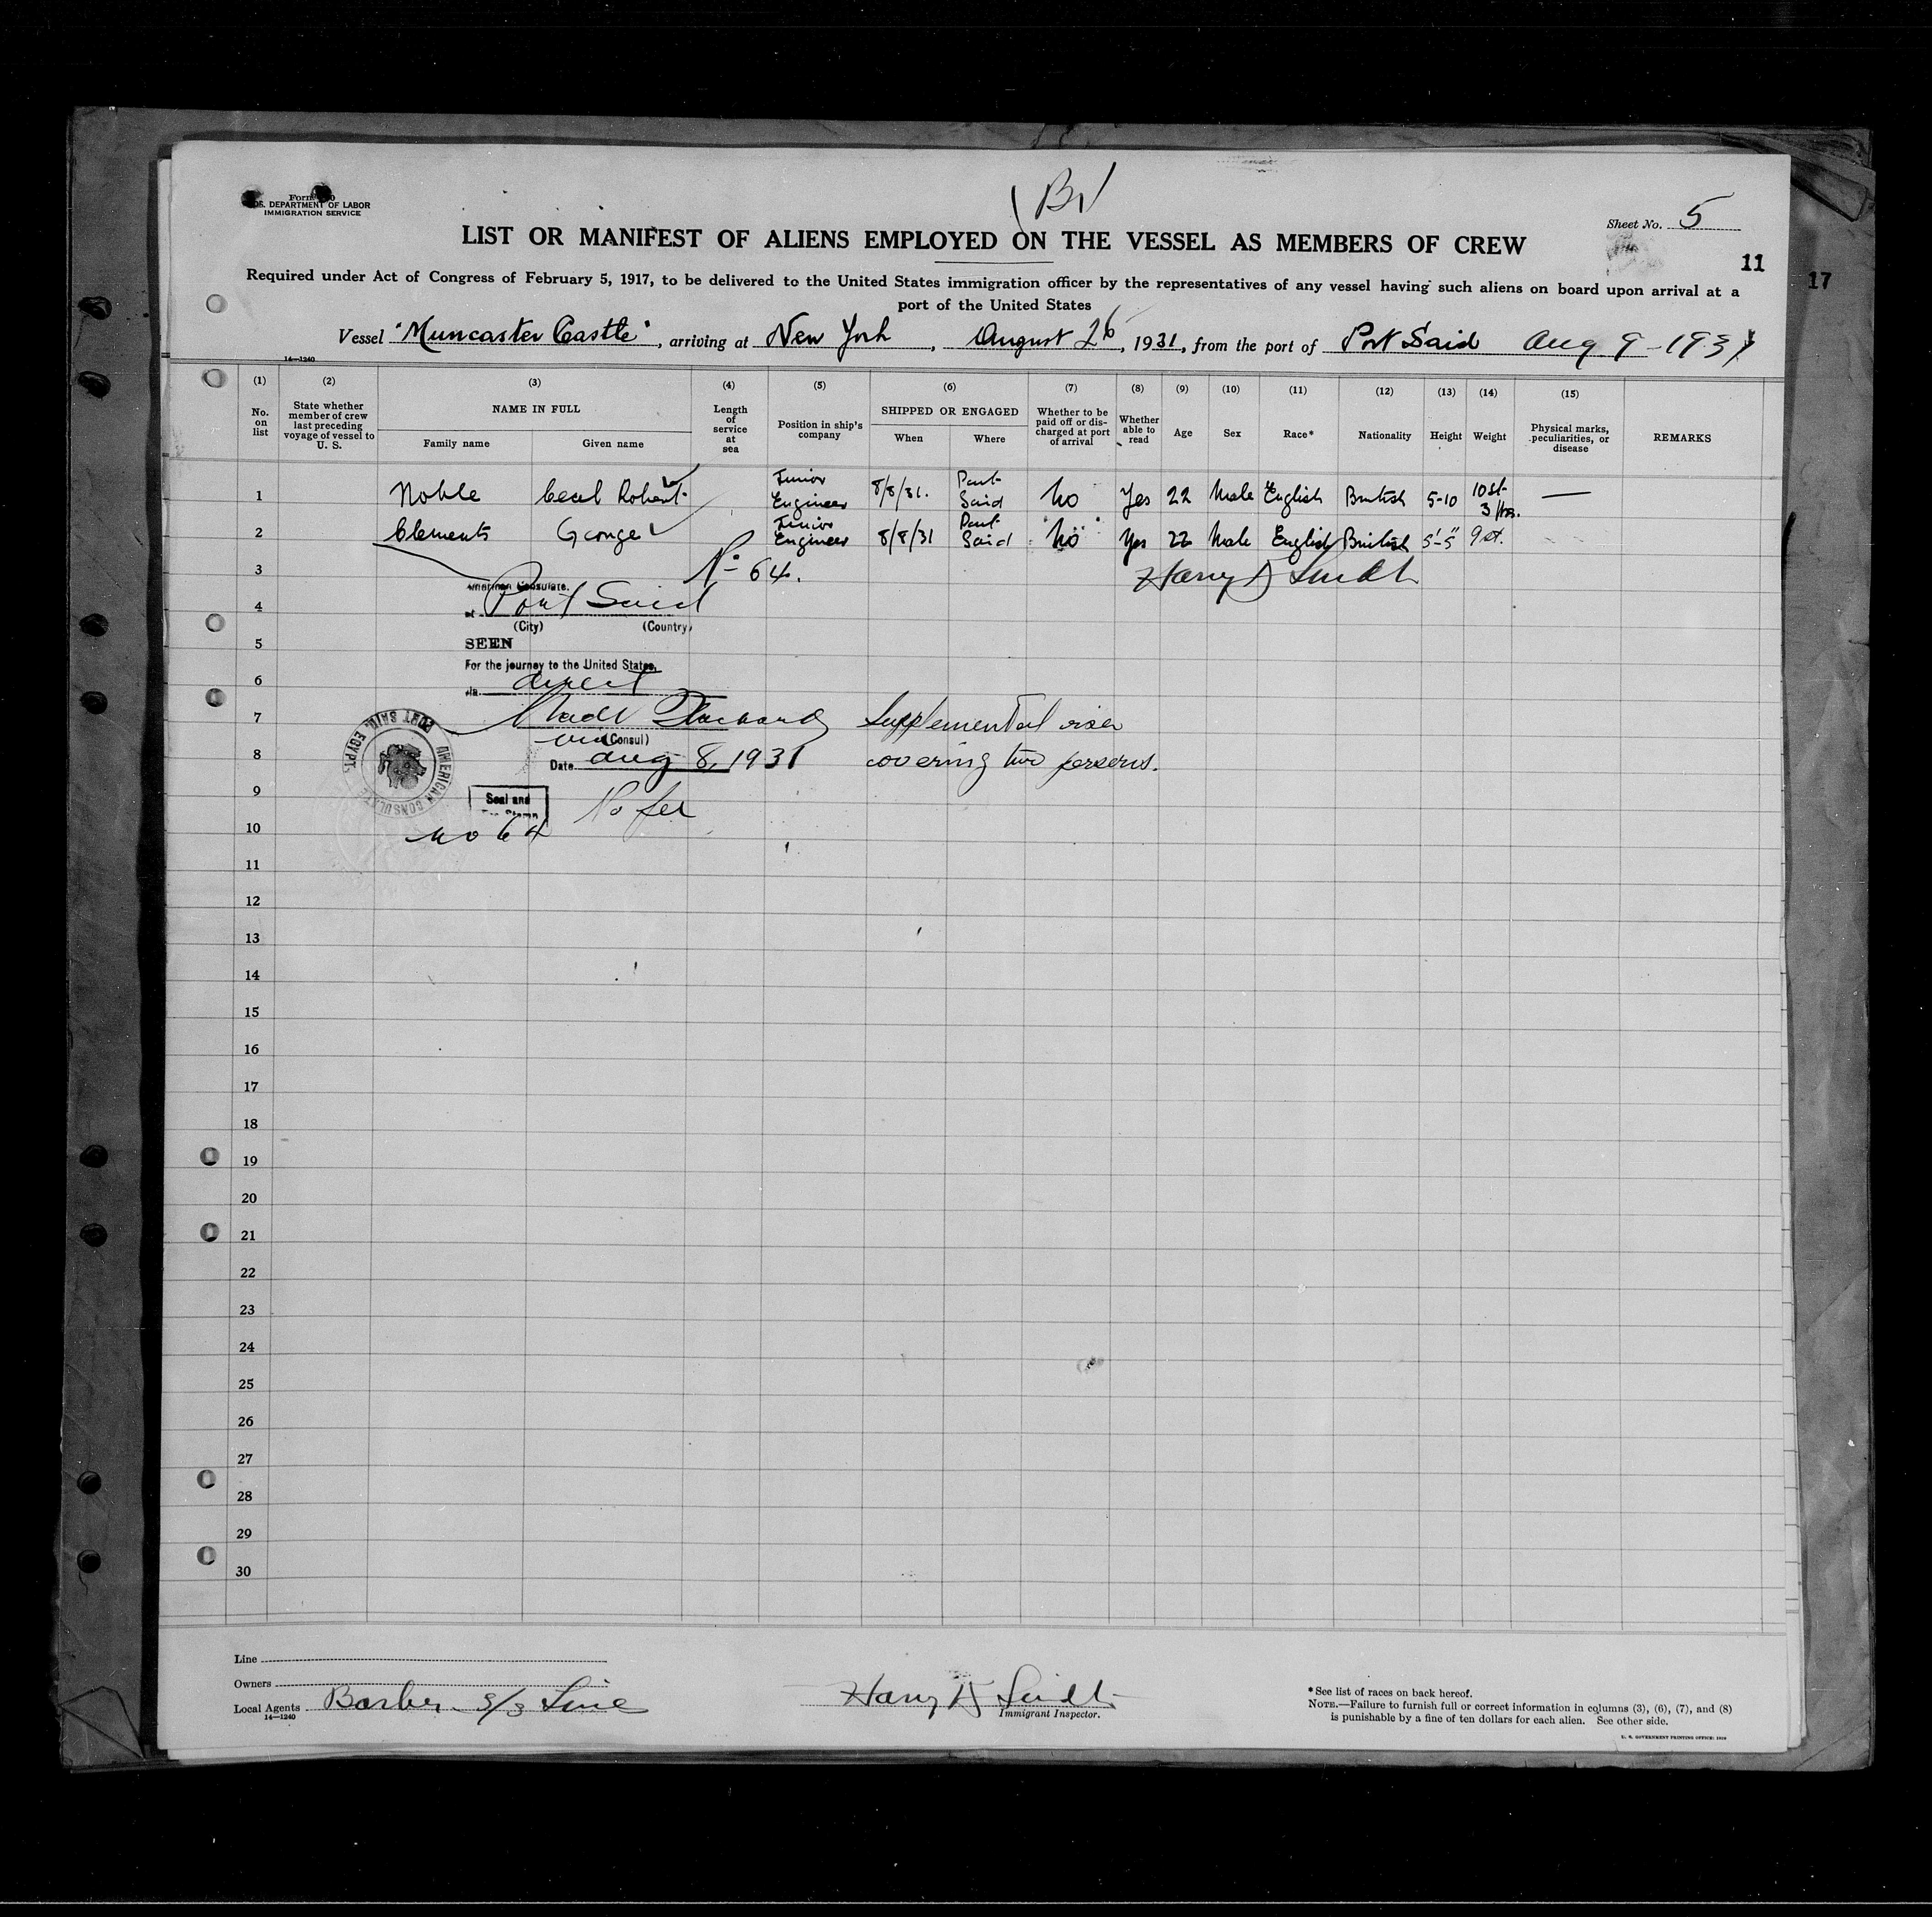 Br
Form
U.S. DEPARTMENT OF LABOR
IMMIGRATION SERVICE
Sheet No. 5
LIST OR MANIFEST OF ALIENS EMPLOYED ON THE VESSEL AS MEMBERS OF CREW
11
17
Required under Act of Congress of February 5, 1917, to be delivered to the United States immigration officer by the representatives of any vessel having such aliens on board upon arrival at a
port of the United States
Vessel "Muncaster Castle", arriving at New York, August 26, 1931, from the port of Port Said Aug 9-1931
14—1240
(1) (2) (3) (4) (5) (6) (7) (8) (9) (10) (11) (12) (13) (14) (15)
No. on list
State whether member of crew last preceding voyage of vessel to U. S.
NAME IN FULL
Family name
Given name
Length of service at sea
Position in ship's company
SHIPPED OR ENGAGED
When
Where
Whether to be paid off or discharged at port of arrival
Whether able to read
Age
Sex
Race*
Nationality
Height
Weight
Physical marks, peculiarities, or disease
REMARKS
1 Noble Cecil Robert Junior Engineer 8/8/31. Port Said No Yes 22 Male English British 5-10 10 st. 3 lbs. —
2 Clements George Junior Engineer 8/8/31 Port Said No Yes 22 Male English British 5'-5" 9 st.
3
No 64.
American Consulate.
4
at Port Said
(City) (Country)
5
SEEN
For the journey to the United States,
6
via direct
7
Supplemental visa
(Consul)
8
Date Aug 8, 1931
covering two persons.
PORT SAID, EGYPT.
AMERICAN CONSULATE
9
Seal and
Fee Stamp
No fee
10
No 64
11
12
13
14
15
16
17
18
19
20
21
22
23
24
25
26
27
28
29
30
Line
Owners
Local Agents Barber S/S Line
14—1240
Immigrant Inspector.
*See list of races on back hereof.
NOTE.—Failure to furnish full or correct information in columns (3), (6), (7), and (8)
is punishable by a fine of ten dollars for each alien. See other side.